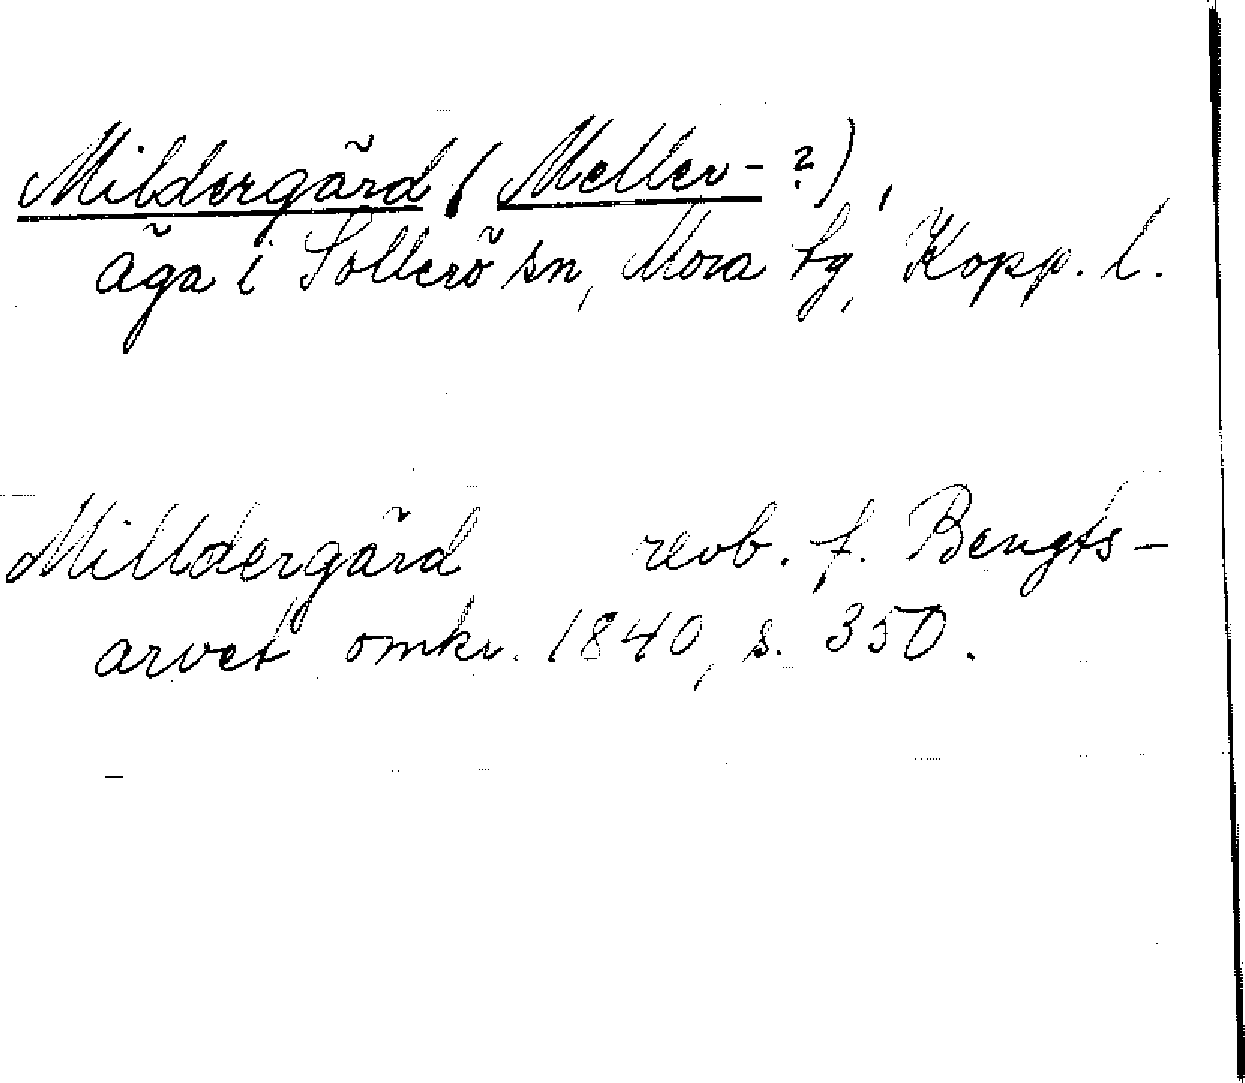 Mildergård (Meller-?),
äga i Sollerö sn, Mora tg, Kopp. l.
Milldergård revb. f. Bengts-
arvet omkr. 1840, s. 350.